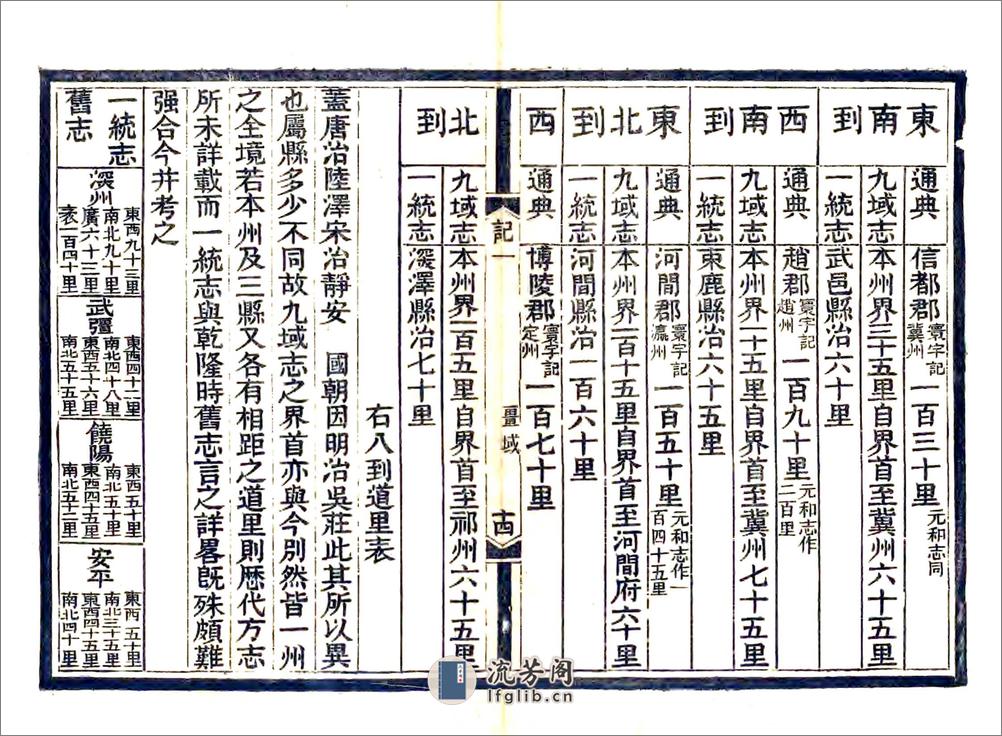 東 通典 信都郡 寰宇記冀州 一百三十里 元和志同
南 九域志 本州界三十五里自界首至冀州六十五里
到 一統志 武邑縣治六十里
西 通典 趙郡 寰宇記趙州 一百九十里 元和志作二百里
南 九域志 本州界一十五里自界首至冀州七十五里
到 一統志 東鹿縣治六十五里
東 通典 河間郡 寰宇記瀛州 一百五十里 元和志作一百四十五里
北 九域志 本州界一百十五里自界首至河間府六十里
到 一統志 河間縣治一百六十里
西 通典 博陵郡 寰宇記定州 一百七十里
記一 疆域 十四
北 九域志 本州界一百五里自界首至祁州六十五里
到 一統志 深澤縣治七十里
右八到道里表
蓋唐治陸澤宋治靜安 國朝因明治吳莊此其所以異
也屬縣多少不同故九域志之界首亦與今別然皆一州
之全境若本州及三縣又各有相距之道里則歷代方志
所未詳載而一統志與乾隆時舊志言之詳畧旣殊頗難
强合今并考之
一統志 深州 東西九十三里 南北九十里 武彊 東西四十二里 南北四十八里 饒陽 東西五十里 南北五十里 安平 東西五十里 南北三十五里
舊志 廣六十三里 袤一百四十里 東西五十六里 南北五十五里 東西四十五里 南北五十二里 東西四十五里 南北四十里
流芳阁
lfglib.cn